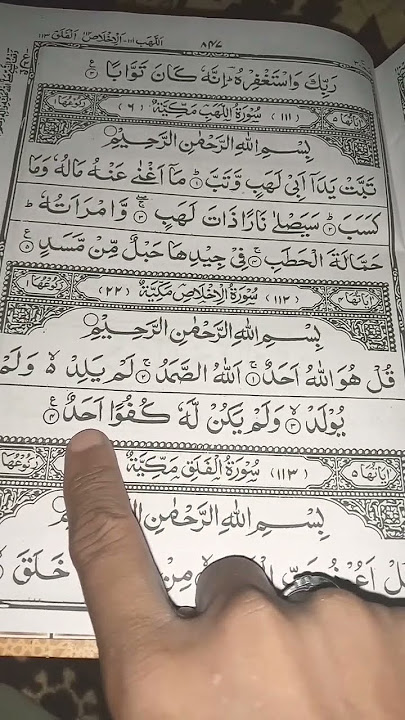 اللهب ١١١- الاخلاص ١١٢- الفلق ١١٣
٨٤٧
رَبِّكَ وَاسْتَغْفِرْهُ ؔ اِنَّهٗ كَانَ تَوَّابًا ۝٣
اٰيَاتُهَا ٥ (١١١) سُوْرَةُ اللَّهَبِ مَكِّيَّةٌ (٦) رُكُوْعُهَا ١
بِسْمِ اللّٰهِ الرَّحْمٰنِ الرَّحِيْمِ
تَبَّتْ يَدَاۤ اَبِيْ لَهَبٍ وَّتَبَّ ۝١ مَاۤ اَغْنٰى عَنْهُ مَالُهٗ وَمَا
كَسَبَ ۝٢ سَيَصْلٰى نَارًا ذَاتَ لَهَبٍ ۝٣ وَّامْرَاَتُهٗ ؕ
حَمَّالَةَ الْحَطَبِ ۝٤ فِيْ جِيْدِهَا حَبْلٌ مِّنْ مَّسَدٍ ۝٥
اٰيَاتُهَا ٤ (١١٢) سُوْرَةُ الْاِخْلَاصِ مَكِّيَّةٌ (٢٢) رُكُوْعُهَا ١
بِسْمِ اللّٰهِ الرَّحْمٰنِ الرَّحِيْمِ
قُلْ هُوَ اللّٰهُ اَحَدٌ ۝١ اَللّٰهُ الصَّمَدُ ۝٢ لَمْ يَلِدْ ۙ وَلَمْ
يُوْلَدْ ۝٣ وَلَمْ يَكُنْ لَّهٗ كُفُوًا اَحَدٌ ۝٤
اٰيَاتُهَا ٥ (١١٣) سُوْرَةُ الْفَلَقِ مَكِّيَّةٌ رُكُوْعُهَا
بِسْمِ اللّٰهِ الرَّحْمٰنِ الرَّحِيْمِ
اَعُوْذُ مِنْ خَلَقَ